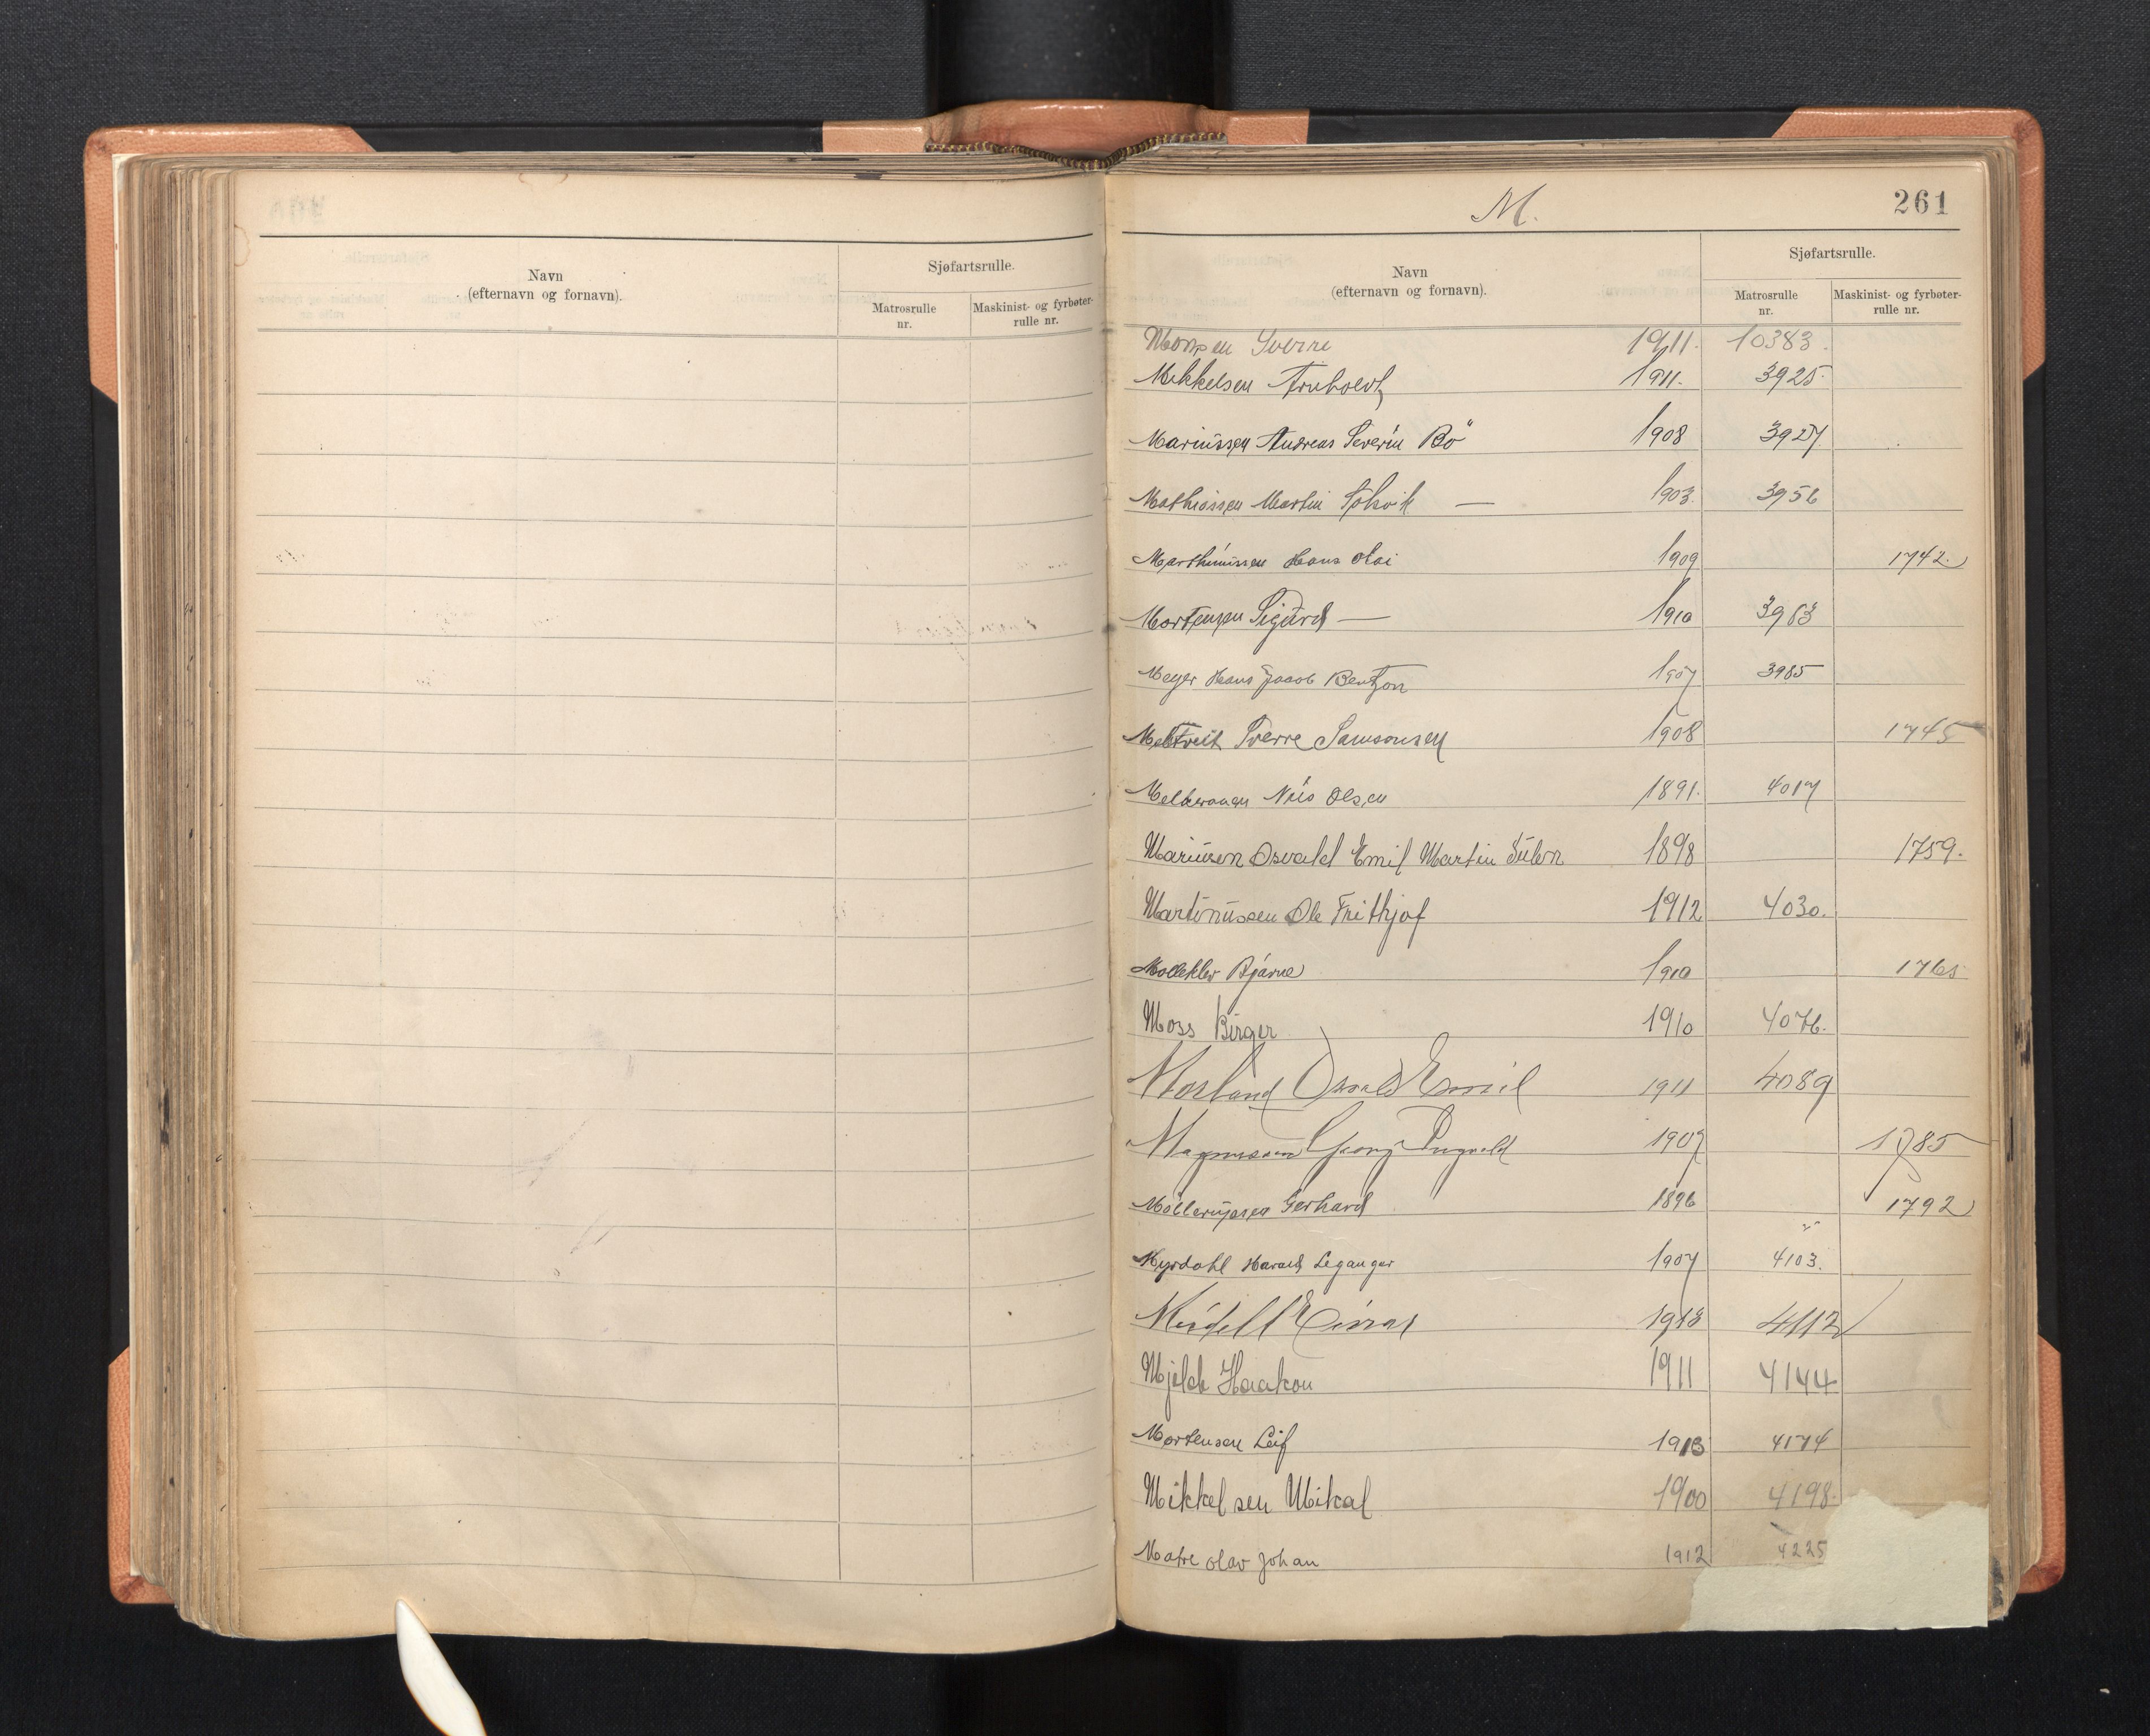 Navn
(efternavn og fornavn).
Sjøfartsrulle.
Matrosrulle
nr.
Maskinist- og fyrbøter-
rulle nr.
M.
261
Navn
(efternavn og fornavn).
Sjøfartsrulle.
Matrosrulle
nr.
Maskinist- og fyrbøter-
rulle nr.
Monsen Sverre 1911. 10383.
Mikkelsen 1911. 3925.
Marinussen Andreas Severin Bö 1908 3927.
Mathiassen Martin — 1903. 3956
Marthinussen Hans Olai 1909 1742.
Mortensen Sigurd — 1910 3963
Meyer Hans Jacob Bentzon 1907 3985
Sverre Samsonsen 1908 1745
Nils Olsen 1891. 4017
Mariusen Osvald Emil Martin 1898 1759.
Martinussen Ole Frithjof 1912 4030.
Bjarne 1910 1765
Moss Birger 1910 4076.
Osvald Emil 1911 4089
Magnussen Georg Ingvald 1907 1785
Gerhard 1896 1792
Myrdahl Harald Leganger 1907 4103.
Einar 1913 4112
Mjelde Haakon 1911 4144
Mortensen Leif 1913 4174
Mikkelsen Mikal 1900 4198.
Matre Olav Johan 1912 4225